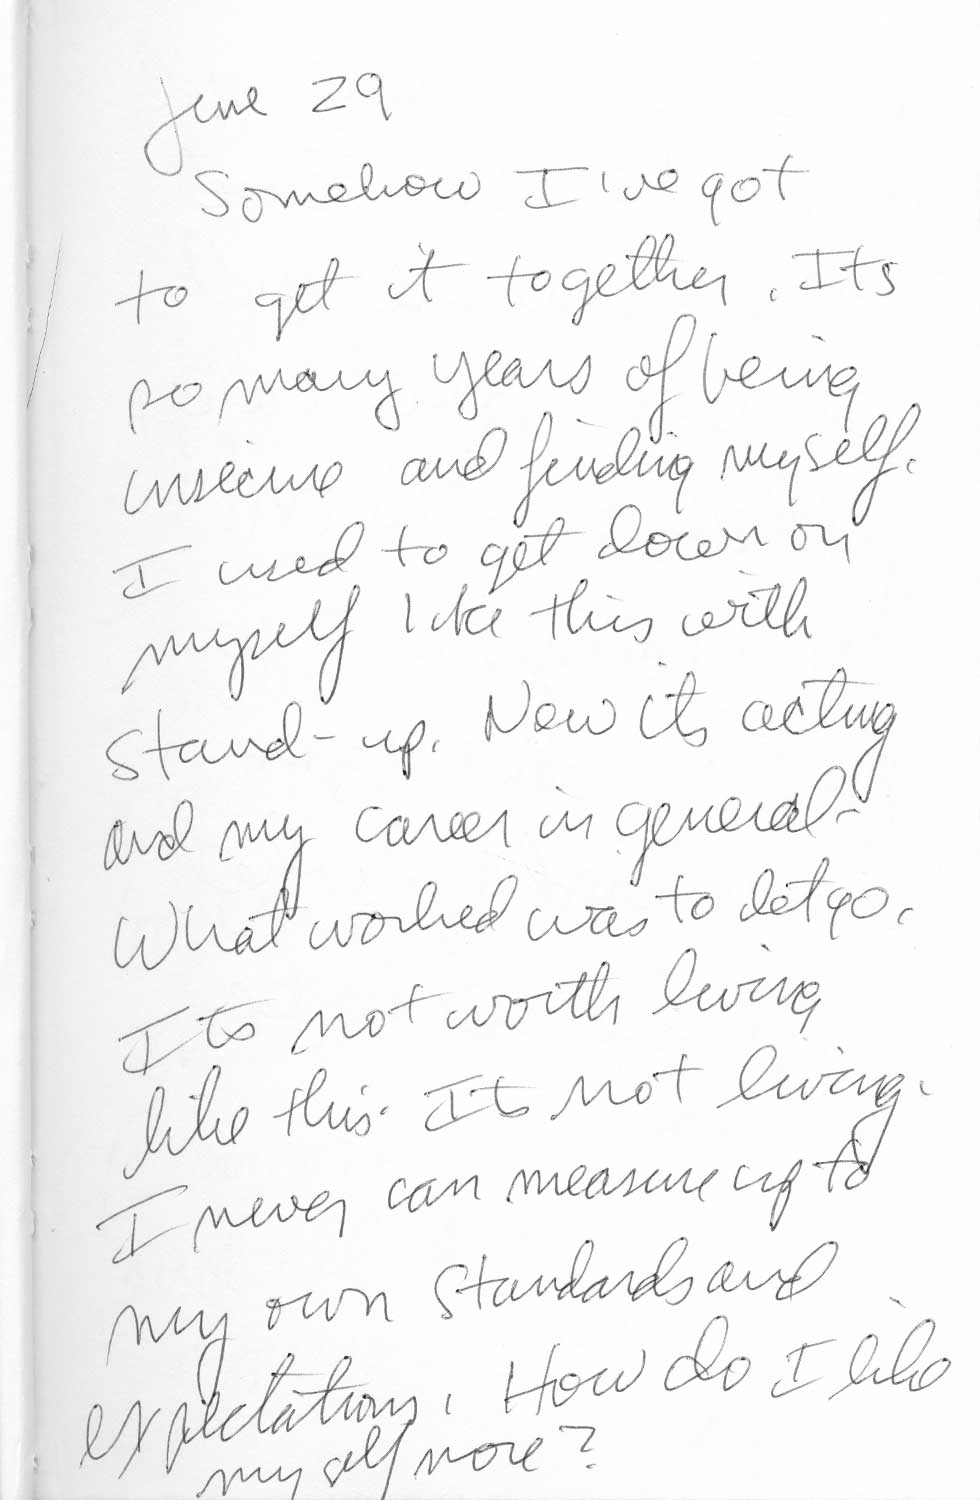 June 29
Somehow I've got
to get it together. Its
so many years of being
insecure and finding myself.
I used to get down on
myself like this with
stand-up. Now its acting
and my career in general-
What worked was to let go.
Its not worth living
like this. Its not living.
I never can measure up to
my own standards and
expectations. How do I like
myself more?